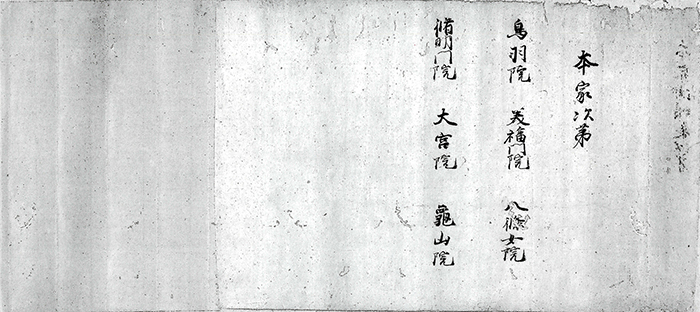 本家次第
鳥羽院　美福門院　八條女院
脩明門院　大宮院　龜山院